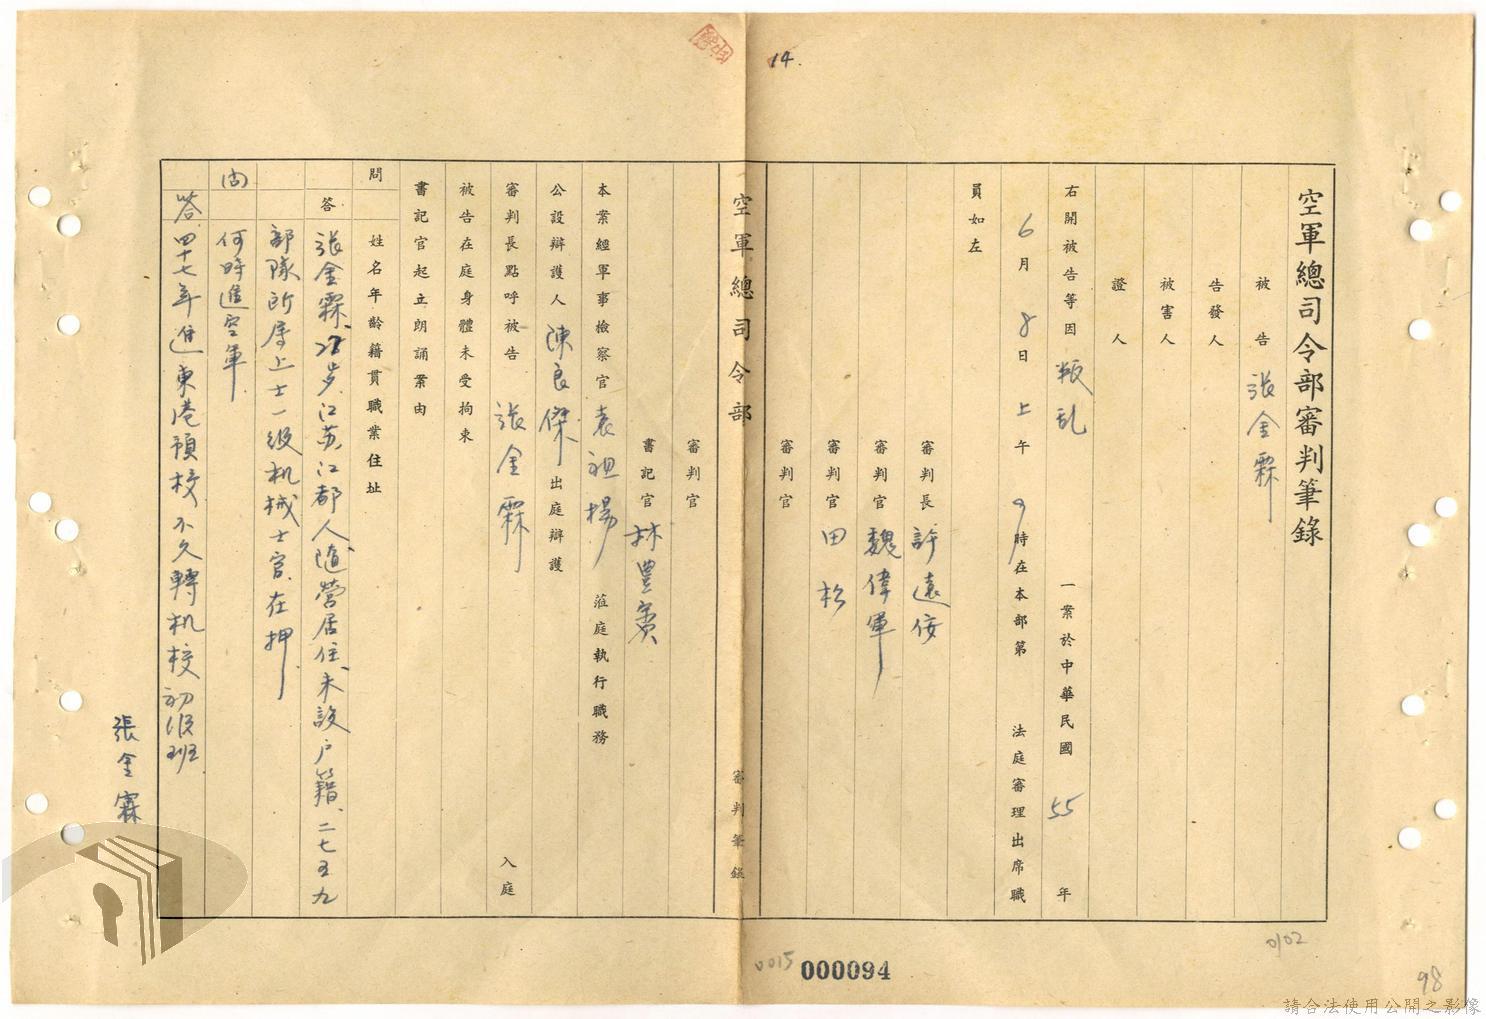 14.
空軍總司令部審判筆錄
被告 張金霖
告發人
被害人
證人
右開被告等因 叛乱 一案於中華民國 55 年
6月8日上午9時在本部第 法庭審理出席職
員如左
審判長 許遠
審判官 魏偉軍
審判官 田松
審判官
空軍總司令部 審判筆錄
審判官
書記官 林豐賓
本案經軍事檢察官 袁祖楊 蒞庭執行職務
公設辯護人 陳良傑 出庭辯護
審判長點呼被告 張金霖 入庭
被告在庭身體未受拘束
書記官起立朗誦案由
問 姓名年齡籍貫職業住址
答 張金霖、28歲、江苏江都人、隨營居住、未設户籍、二七五九
部隊所屬上士一級机械士官、在押
問 何時進空軍
答 四十七年進東港預校不久轉机校初级班
張金霖
0015
000094
0102
98
請合法使用公開之影像